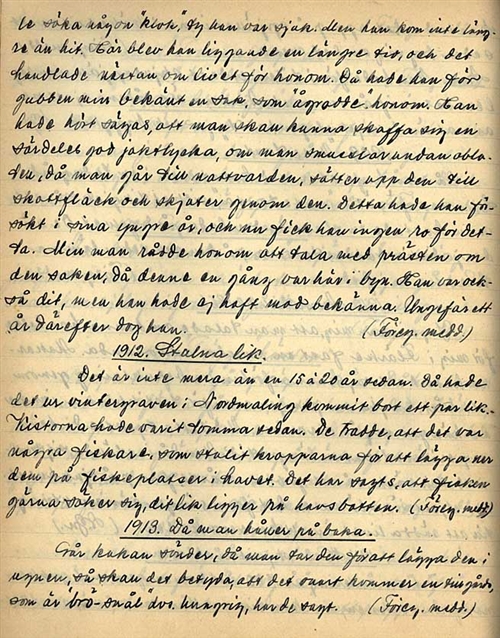 le söka någon "klok", ty han var sjuk. Men han kom inte läng-
re än hit. Här blev han liggande en längre tid, och det
handlade nästan om livet för honom. Då hade han för
gubben min bekänt en sak, som "ågrodde" honom. Han
hade hört sägas, att man skau kunna skaffa sig en
särdeles god jaktlycka, om man smusslar undan obla-
ten, då man går till nattvarden, sätter upp den till
skottfläck och skjuter genom den. Detta hade han för-
sökt i sina yngre år, och nu fick han ingen ro för det-
ta. Min man rådde honom att tala med prästen om
den saken, då denne en gång var här i byn. Han var ock-
så dit, men han hade ej haft mod bekänna. Ungefär ett
år därefter dog han. (Föreg. medd.)
1912. Stulna lik.
Det är inte mera än en 15 à 20 år sedan. Då hade
det ur vintergraven i Nordmaling kommit bort ett par lik.
Kistorna hade varit tomma sedan. De trodde, att det var
några fiskare, som stulit kropparna för att lägga ner
dem på fiskeplatser i havet. Det har sagts, att fisken
gärna söker sig, dit lik ligger på havsbotten. (Föreg. medd)
1913. Då man håller på baka.
Går kakan sönder, då man tar den för att lägga den i
ugnen, så skau det betyda, att det snart kommer en till gårds,
som är "brö-snål" dvs. hungrig, har de sagt. (Föreg. medd.)